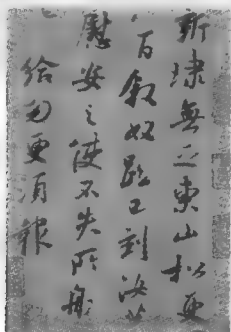 新埭無乏東山松更
百敘奴已到汝等
慰安之使不失所
給勿更須報